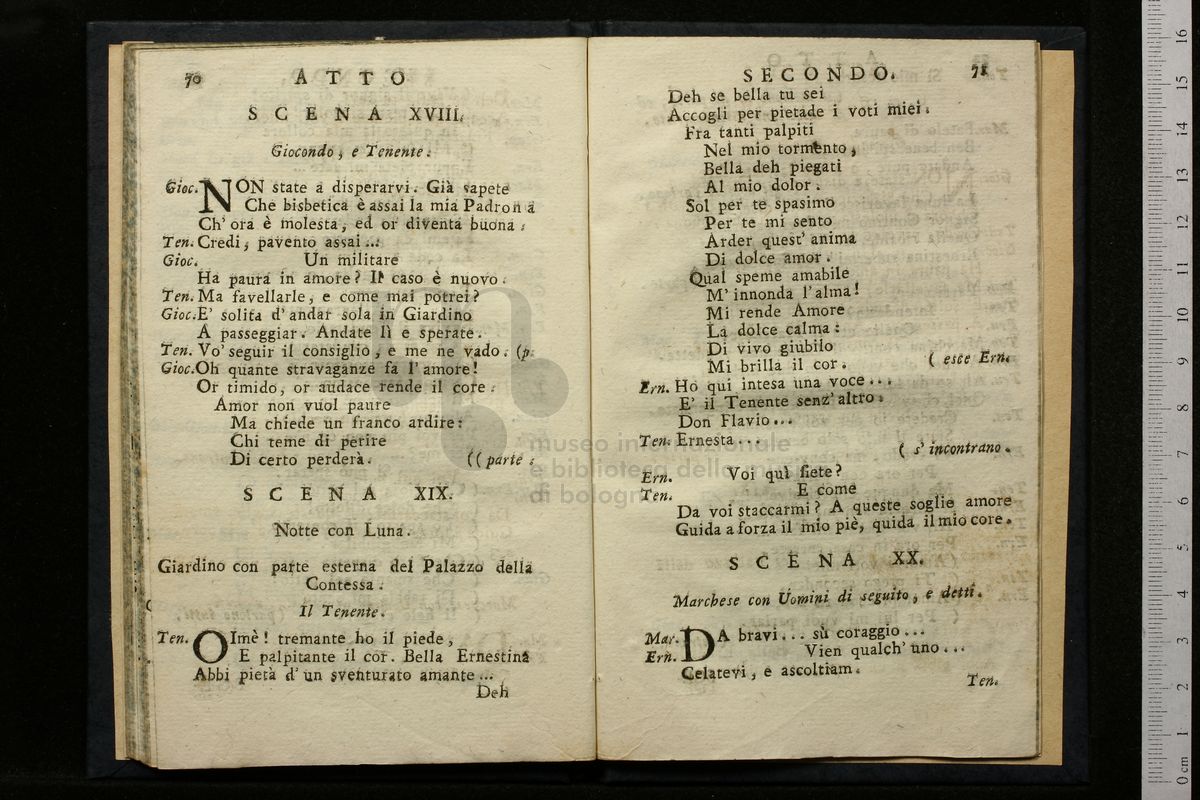 70 ATTO
SCENA XVIII.
Giocondo, e Tenente.
Gioc. NON state a disperarvi. Già sapete
Che bisbetica è assai la mia Padrona
Ch' ora è molesta, ed or diventa buona.
Ten. Credi, pavento assai...
Gioc. Un militare
Ha paura in amore? Il caso è nuovo.
Ten. Ma favellarle, e come mai potrei?
Gioc. E' solita d'andar sola in Giardino
A passeggiar. Andate lì e sperate.
Ten. Vo' seguir il consiglio, e me ne vado. (p.
Gioc. Oh quante stravaganze fa l'amore!
Or timido, or audace rende il core.
Amor non vuol paure
Ma chiede un franco ardire:
Chi teme di perire
Di certo perderà. (( parte.
SCENA XIX.
Notte con Luna.
Giardino con parte esterna del Palazzo della
Contessa.
Il Tenente.
Ten. OImè! tremante ho il piede,
E palpitante il cor. Bella Ernestina
Abbi pietà d'un sventurato amante...
Deh
SECONDO. 71
Deh se bella tu sei
Accogli per pietade i voti miei.
Fra tanti palpiti
Nel mio tormento,
Bella deh piegati
Al mio dolor.
Sol per te spasimo
Per te mi sento
Arder quest' anima
Di dolce amor.
Qual speme amabile
M' innonda l'alma!
Mi rende Amore
La dolce calma:
Di vivo giubilo
Mi brilla il cor. ( esce Ern.
Ern. Ho qui intesa una voce...
E' il Tenente senz' altro.
Don Flavio...
Ten. Ernesta... ( s' incontrano.
Ern. Voi quì siete?
Ten. E come
Da voi staccarmi? A queste soglie amore
Guida a forza il mio piè, quida il mio core.
SCENA XX.
Marchese con Uomini di seguito, e detti.
Mar. DA bravi... sù coraggio...
Ern. Vien qualch' uno...
Celatevi, e ascoltiam.
Ten.
museo internazionale
e biblioteca della musica
di bologna
0 cm 1 2 3 4 5 6 7 8 9 10 11 12 13 14 15 16